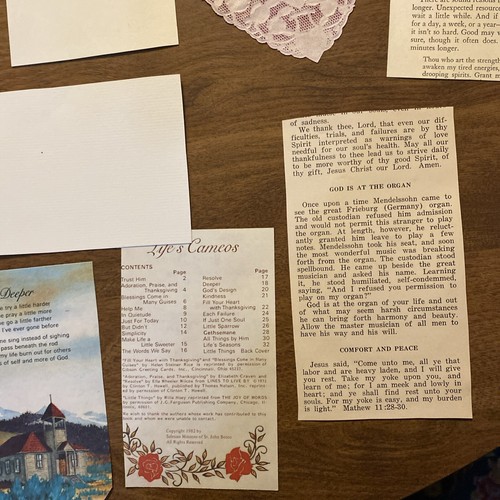 There are sound reasons
longer. Unexpected resour
wait a little while. And if
for a day, a week, or a year—
it isn't so hard. God may
sure, though it often does.
minutes longer.
Thou who art the strength
awaken my tired energies,
drooping spirits. Grant
of sadness.
We thank thee, Lord, that even our dif-
ficulties, trials, and failures are by thy
Spirit interpreted as warnings of love
needful for our soul's health. May all our
thankfulness to thee lead us to strive daily
to be more worthy of thy good Spirit, of
thy gift, Jesus Christ our Lord. Amen.
GOD IS AT THE ORGAN
Once upon a time Mendelssohn came to
see the great Frieburg (Germany) organ.
The old custodian refused him admission
and would not permit this stranger to play
the organ. At length, however, he reluc-
tantly granted him leave to play a few
notes. Mendelssohn took his seat, and soon
the most wonderful music was breaking
forth from the organ. The custodian stood
spellbound. He came up beside the great
musician and asked his name. Learning
it, he stood humiliated, self-condemned,
saying, "And I refused you permission to
play on my organ!"
God is at the organ of your life and out
of what may seem harsh circumstances
he can bring forth harmony and beauty.
Allow the master musician of all men to
have his way and his will.
COMFORT AND PEACE
Jesus said, "Come unto me, all ye that
labor and are heavy laden, and I will give
you rest. Take my yoke upon you, and
learn of me; for I am meek and lowly in
heart; and ye shall find rest unto your
souls. For my yoke is easy, and my burden
is light." Mathew 11:28-30.
Life's Cameos
CONTENTS
Page
Trust Him 2
Adoration, Praise, and
Thanksgiving 4
Blessings Come in
Many Guises 6
Help Me 8
In Quietude 9
Just For Today 10
But Didn't 12
Simplicity 14
Make Life a
Little Sweeter 15
The Words Kind 16
Page
Resolve 17
Deeper 18
God's Design 20
Kindness 21
Fill Your Heart
With Thanksgiving 22
Each Failure 24
If Just One Soul 25
Little Sparrow 26
Gethsemane 28
All Things by Him 30
Life's Seasons 32
Little Things Back Cover
We wish to thank the authors whose work has contributed to this
book and whom we were unable to contact.
Copyright 1982 by
All Rights Reserved
Deeper
try a little harder
pray a little more
go a little farther
I've ever gone before
sing instead of sighing
pass beneath the rod
my life burn out for others
of self and more of God.